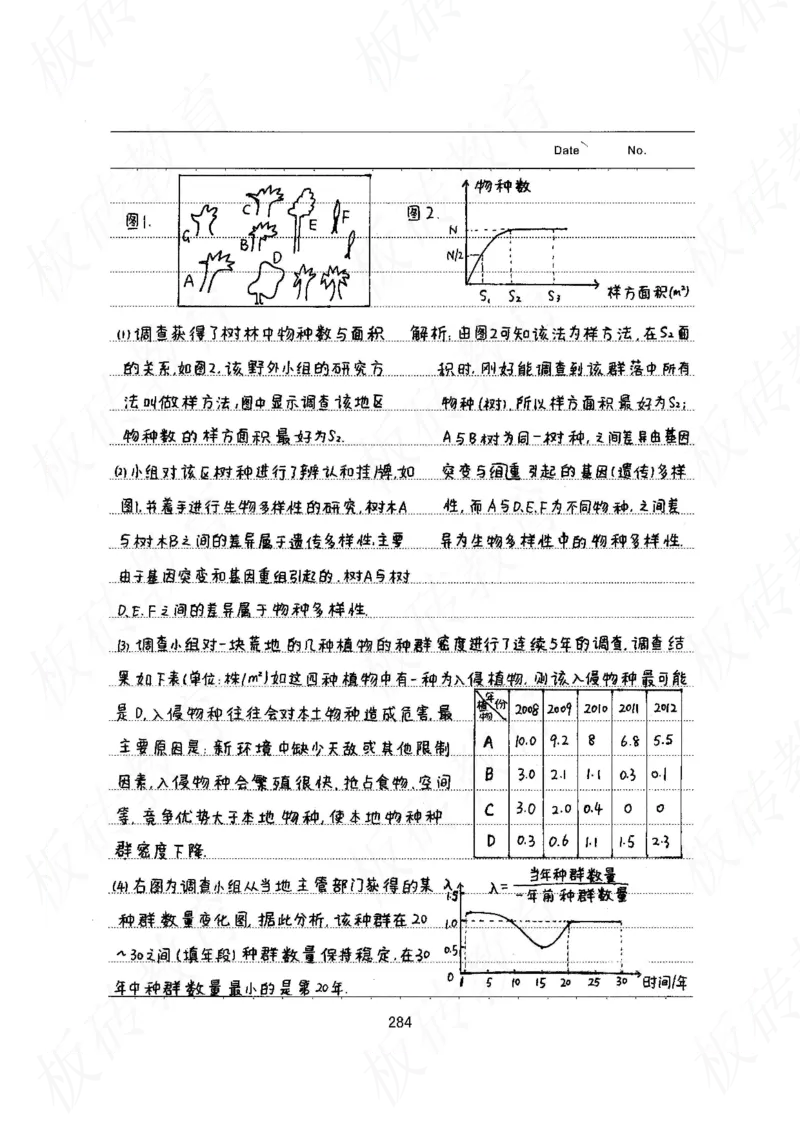 Date No.
图1.
C
E
F
G
B
D
A
图2.
物种数
N
N/2
S₁ S₂ S₃
样方面积(m²)
(1)调查获得了树林中物种数与面积
的关系,如图2,该野外小组的研究方
法叫做样方法,图中显示调查该地区
物种数的样方面积最好为S₂.
(2)小组对该区树种进行了辨认和挂牌,如
图1,并着手进行生物多样性的研究,树木A
与树木B之间的差异属于遗传多样性,主要
由于基因突变和基因重组引起的,树A与树
D、E、F之间的差异属于物种多样性.
解析:由图2可知该法为样方法,在S₂面
积时,刚好能调查到该群落中所有
物种(树),所以样方面积最好为S₂;
A与B树为同一树种,之间差异由基因
突变与组重引起的基因(遗传)多样
性,而A与D、E、F为不同物种,之间差
异为生物多样性中的物种多样性.
(3)调查小组对一块荒地的几种植物的种群密度进行了连续5年的调查,调查结
果如下表(单位:株/m²)如这四种植物中有一种为入侵植物,则该入侵物种最可能
是D,入侵物种往往会对本土物种造成危害,最
主要原因是:新环境中缺少天敌或其他限制
因素,入侵物种会繁殖很快,抢占食物、空间
等,竞争优势大于本地物种,使本地物种种
群密度下降.
年份 植物 2008 2009 2010 2011 2012
A 10.0 9.2 8 6.8 5.5
B 3.0 2.1 1.1 0.3 0.1
C 3.0 2.0 0.4 0 0
D 0.3 0.6 1.1 1.5 2.3
(4)右图为调查小组从当地主管部门获得的某
种群数量变化图,据此分析,该种群在20
~30之间(填年段)种群数量保持稳定,在30
年中种群数量最小的是第20年.
λ
λ=当年种群数量/一年前种群数量
1.5
1.0
0.5
0 1 5 10 15 20 25 30 时间/年
284
板砖教育